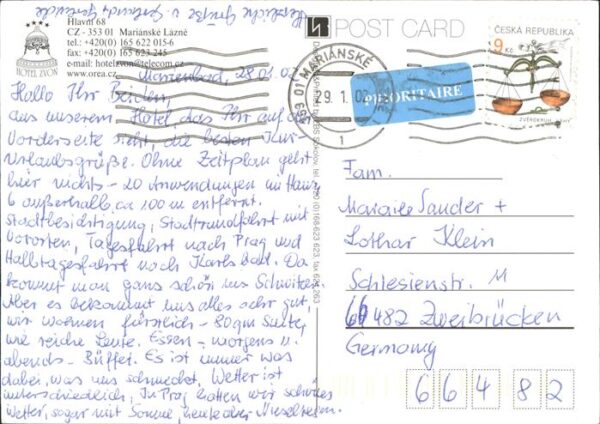 Herzliche Grüße v.
Hlavní 68
CZ - 353 01 Mariánské Lázně
tel.: +420(0) 165 622 015-6
fax: +420(0) 165 623 245
e-mail: hotelzvon@telecom.cz
www.orea.cz
HOTEL ZVON
Marienbad, 28.01.02
Hallo Ihr Beiden,
aus unserem Hotel, das Ihr auf der
Vorderseite seht, die besten Kur-
Urlaubsgrüße. Ohne Zeitplan geht
hier nichts - 20 Anwendungen im Haus,
6 außerhalb, ca 100 m entfernt.
Stadtbesichtigung, Stadtrundfahrt mit
Vororten, Tagesfahrt nach Prag und
Halbtagesfahrt nach Karlsbad. Da
kommt man ganz schön ins Schwitzen.
Aber es bekommt uns alles sehr gut,
wir wohnen fürstlich - 80 qm Suite,
wie reiche Leute. Essen - morgens u.
abends - Büffet. Es ist immer was
dabei, was uns schmeckt. Wetter ist
unterschiedlich, In Prag hatten wir schönes
Wetter, sogar mit Sonne, heute aber Nieselregen.
POST CARD
353 01 MARIÁNSKÉ
29.1.02
1
PRIORITAIRE
ČESKÁ REPUBLIKA
9 Kč
ZVĚROKRUH
Fam.
Sander +
Lothar Klein
Schlesienstr. 11
66482 Zweibrücken
Germany
66482